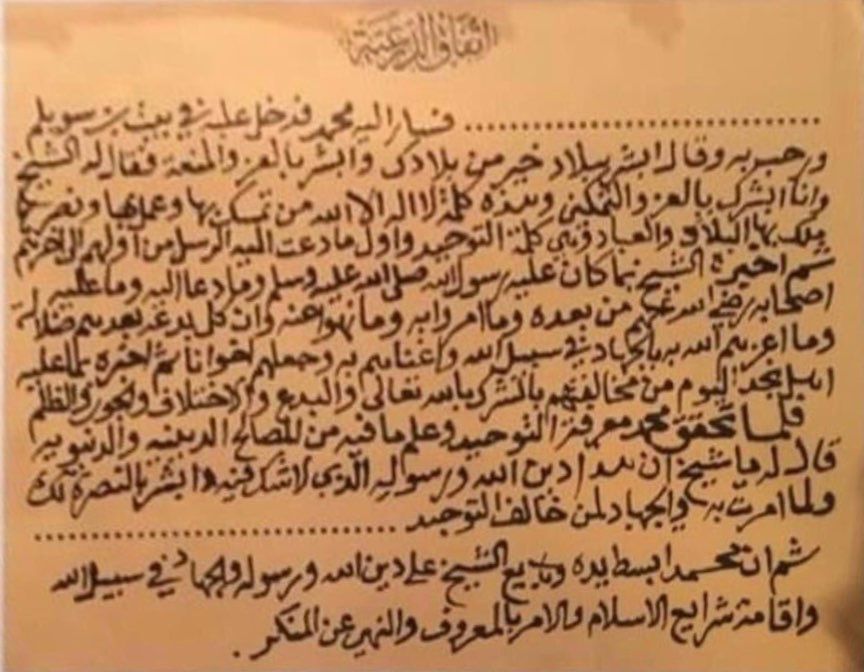 اتفاق الدرعية
.................... فسار اليه محمد فدخل عليه في بيت بن سويلم
ورحب به وقال ابشر ببلاد خير من بلادك وابشر بالعز والمنعة فقال له الشيخ
وانا ابشرك بالعز والتمكين وهذه كلمة لا اله الا الله من تمسك بها وعمل بها ونصرها
ملك بها البلاد والعباد وهي كلمة التوحيد واول ما دعت اليه الرسل من اولهم الى اخرهم
ثم اخبره الشيخ بما كان عليه رسول الله صلى الله عليه وسلم وما دعا اليه وما عليه
اصحابه رضي الله عنهم من بعده وما امروا به وما نهوا عنه وان كل بدعة بعدهم ضلالة
وما اعزهم الله به بالجهاد في سبيل الله واغناهم به وجعلهم اخوانا ثم اخبره بما عليه
اهل نجد اليوم من مخالفتهم بالشرك بالله تعالى والبدع والاختلاف والجور والظلم
فلما تحقق محمد معرفة التوحيد وعلم ما فيه من المصالح الدينيه والدنيويه
قال له يا شيخ ان هذا دين الله ورسوله الذي لا شك فيه وابشر بالنصرة لك
ولما امرت به والجهاد لمن خالف التوحيد ....................
ثم ان محمد ابسط يده وبايع الشيخ على دين الله ورسوله والجهاد في سبيل الله
واقامة شرايع الاسلام والامر بالمعروف والنهي عن المنكر .